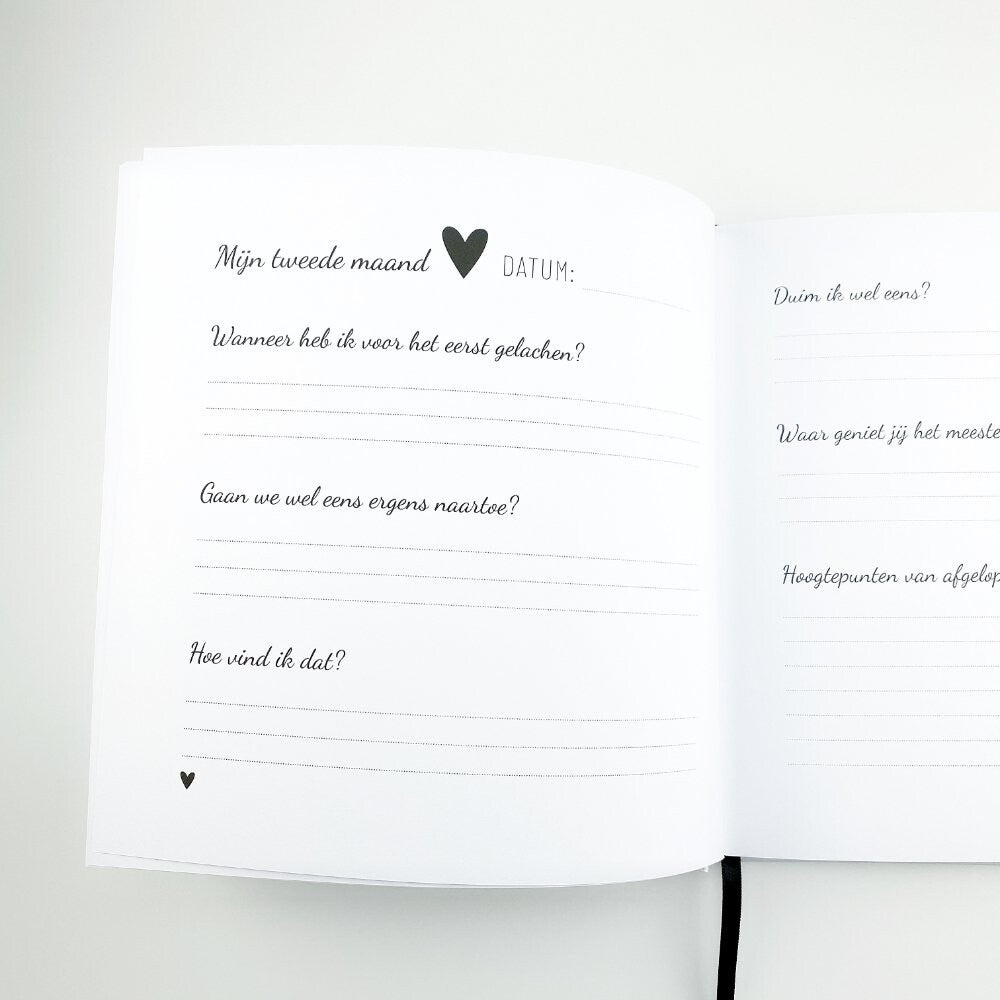 Mijn tweede maand DATUM:
Wanneer heb ik voor het eerst gelachen?
Gaan we wel eens ergens naartoe?
Hoe vind ik dat?
Duim ik wel eens?
Waar geniet jij het meeste
Hoogtepunten van